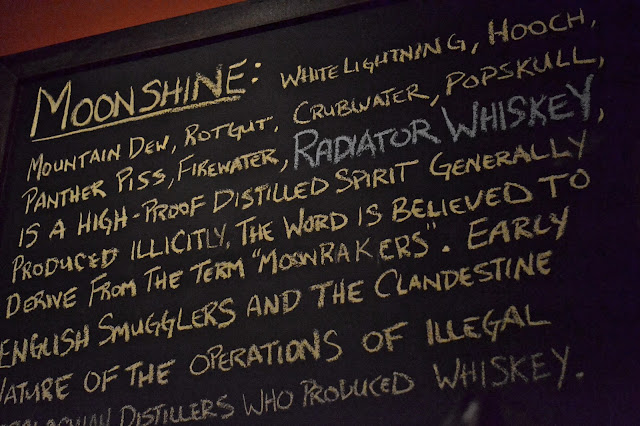 MOONSHINE: WHITE LIGHTNING, HOOCH,
MOUNTAIN DEW, ROTGUT, CRUBWATER, POPSKULL,
PANTHER PISS, FIREWATER, RADIATOR WHISKEY,
IS A HIGH-PROOF DISTILLED SPIRIT GENERALLY
PRODUCED ILLICITLY. THE WORD IS BELIEVED TO
DERIVE FROM THE TERM "MOONRAKERS". EARLY
ENGLISH SMUGGLERS AND THE CLANDESTINE
NATURE OF THE OPERATIONS OF ILLEGAL
DISTILLERS WHO PRODUCED WHISKEY.